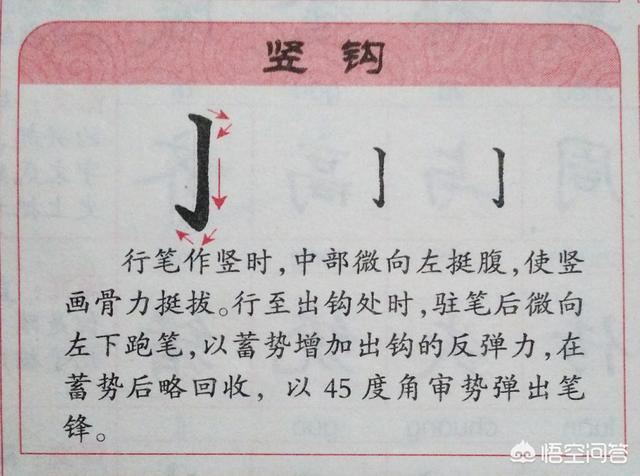 竖钩
行笔作竖时,中部微向左挺腹,使竖
画骨力挺拔。行至出钩处时,驻笔后微向
左下跑笔,以蓄势增加出钩的反弹力,在
蓄势后略回收,以45度角审势弹出笔
锋。
悟空问答